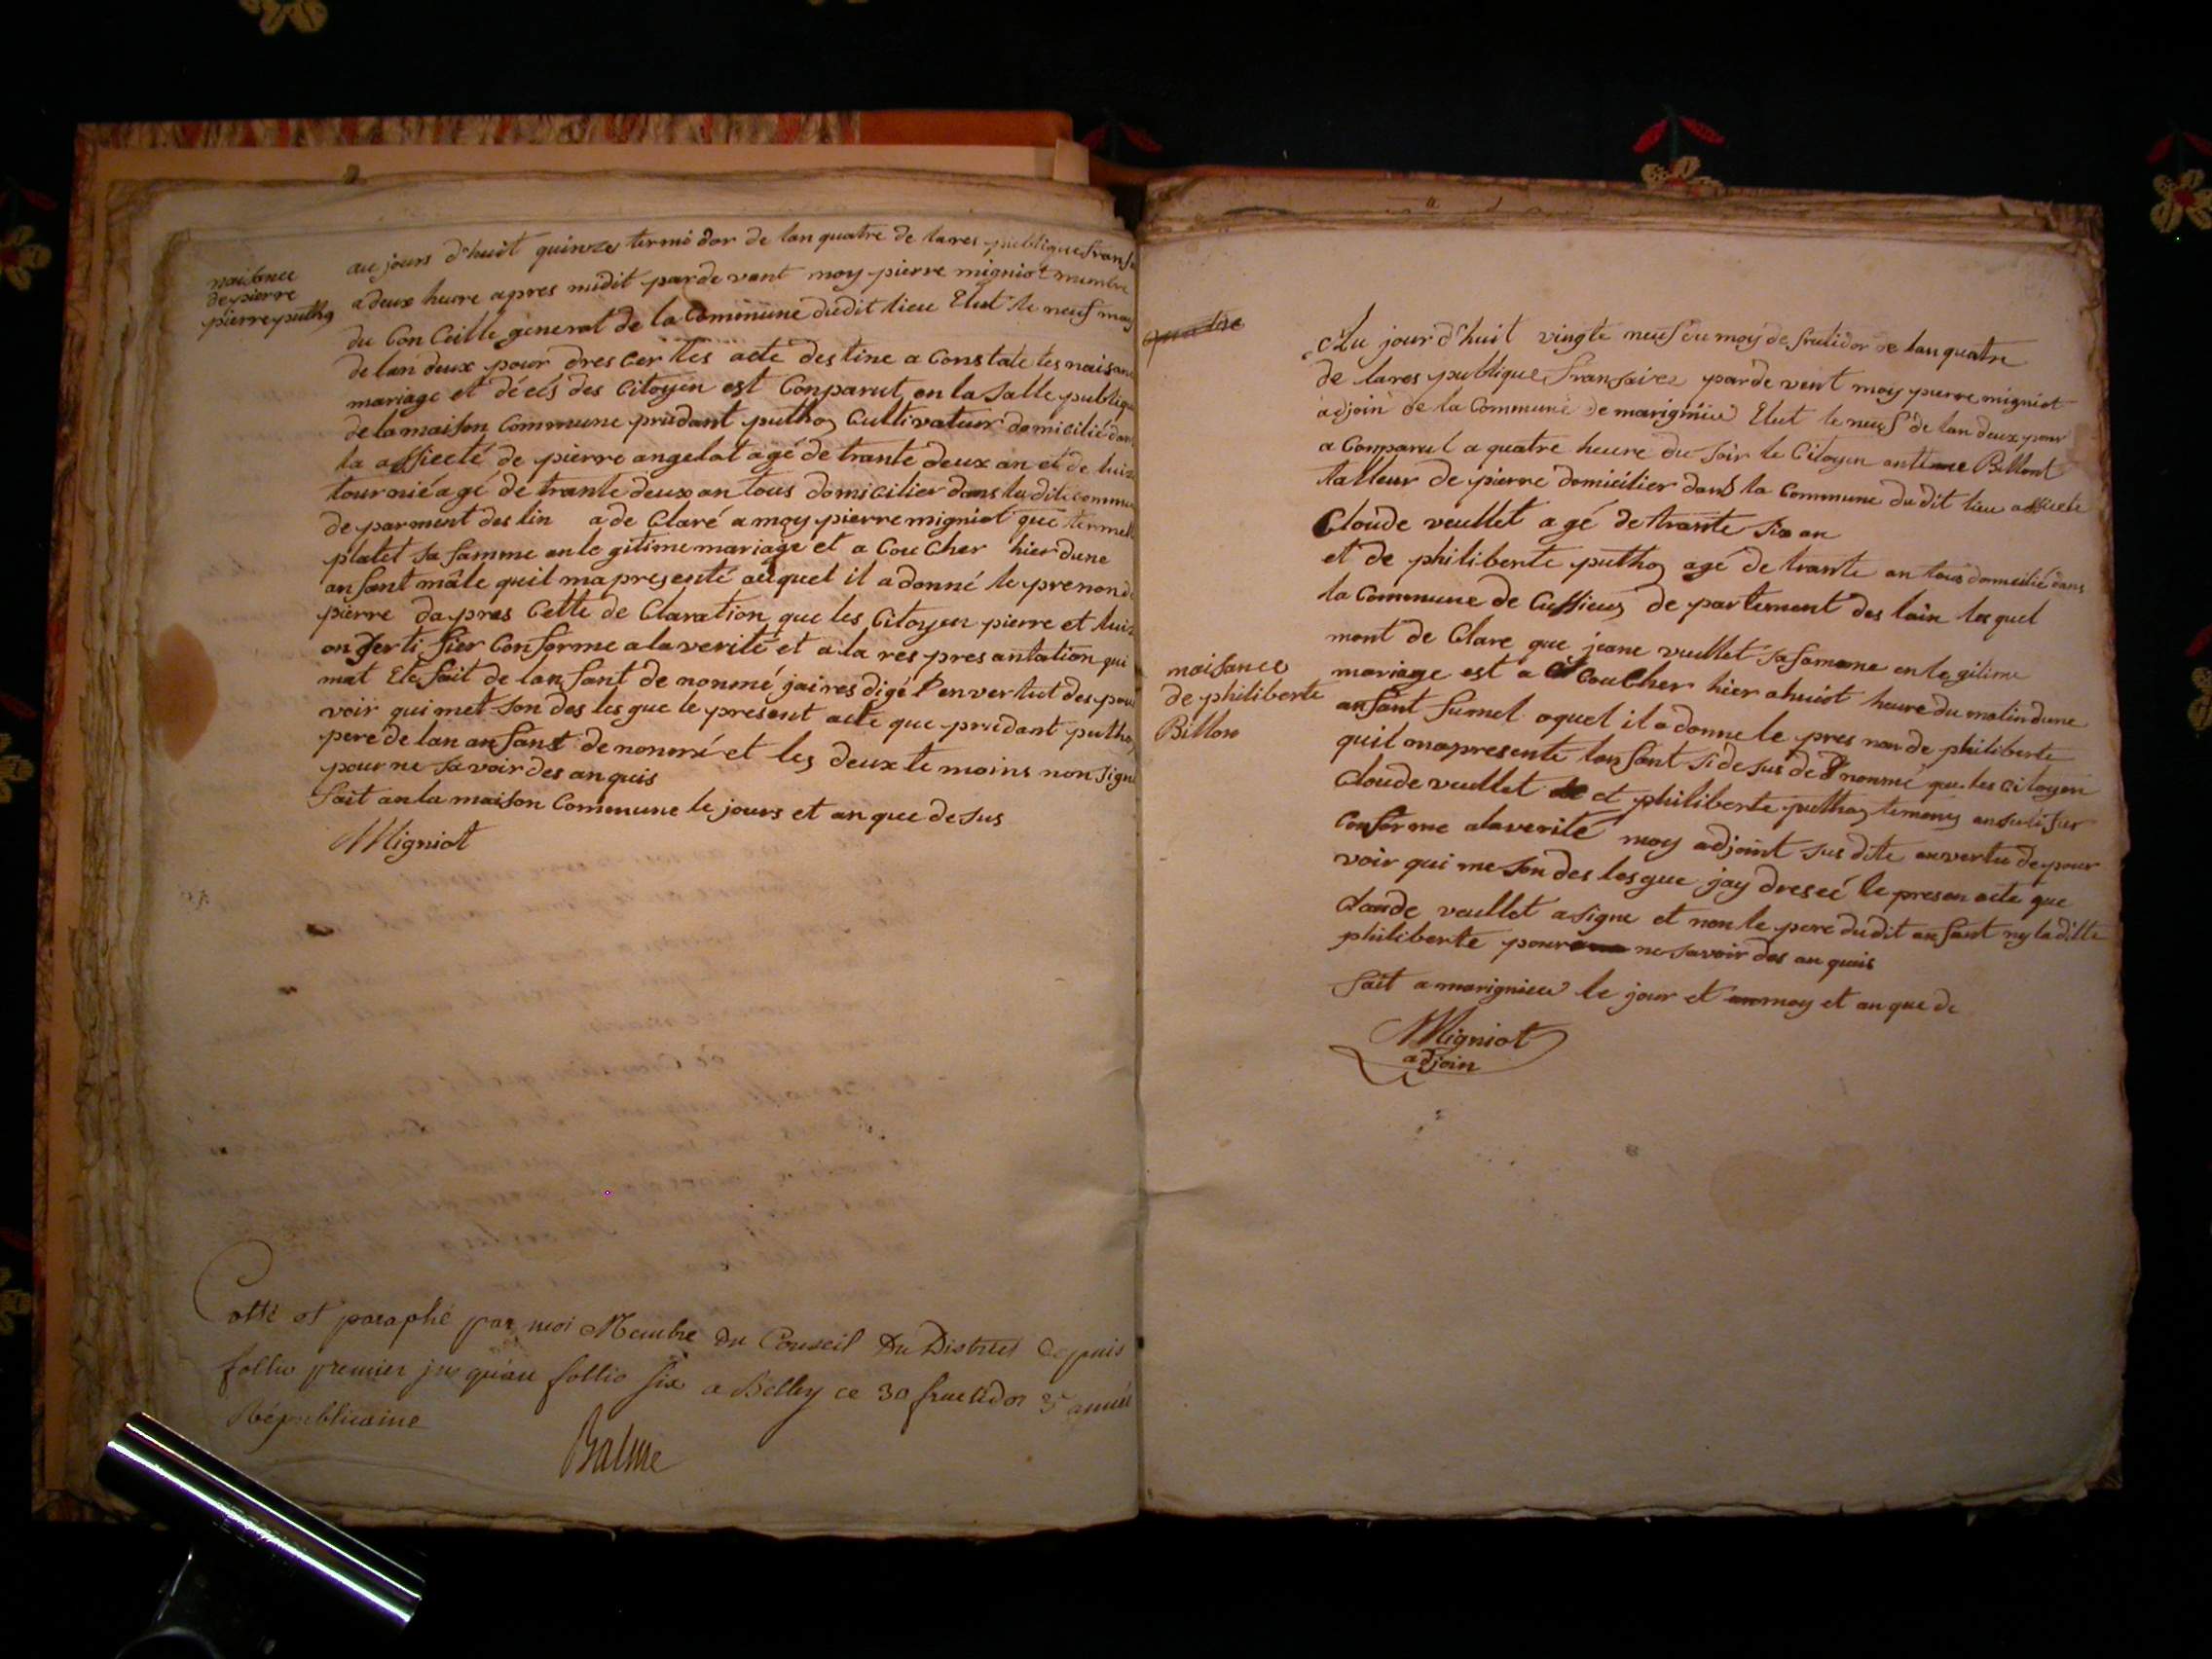 naisance
de pierre
pierre putho
au jours d'huit quinze termi dor de lan quatre de la res publique fransa
a deux heure apres midit par de vant moy pierre migniot membre
du Con Ceille general de la Commune du dit lieu Elut le neuf may
de lan deux pour dres cer les acte des tine a Constate les naisanc
mariage et décés des Citoyen est Conparut en la salle publique
de la maison Commune prudant putho Cultivateur domicilié dans
la assiecté de pierre angelot agé de trante deux an et de luise
tournié agé de trante deux an tous domicilier dans la dite commun
de parment des lin a de Claré a moy pierre migniot que
platet sa famme en le gitime mariage et a Cou Cher hier dune
an fant mâle quil ma presenté auquel il a donné le prenon de
pierre da pres Cette de Claration que les Citoyen pierre et luise
on serti fier Conforme a la verité et a la res pres antation qui
mat Ete fait de lan fant de nonmé jai res digé en vertut des pou
voir qui met son des les gue le present acte que prudant putho
pere de lan an fant de nonmé et les deux te moins non signe
pour ne sa voir des an quis
fait an la maison Commune le jours et an que de sus
Migniot
Cotté et paraphé par moi Membre du Conseil Du District depuis
follio premier jusqu'au follio six a Belley ce 30 fructidor 3e année
Républicaine
Balme
quatre
naisance
de philiberte
Billon
Au jour d'huit vingte neuf du moy de frutidor de lan quatre
de la res publique fransaire par de vent moy pierre migniot
adjoin de la Commune de marignieu Elut le neuf de lan deux pour
a Conparut a quatre heure du soir le Citoyen Billont
talleur de pierre domicilier dans la Commune du dit lieu assiecte
Cloude veullet a gé de trante six an
et de philiberte putho agé de trante an tous domicilié dans
la Commune de Cussieu de partement des lain les quel
mont de Clare que jeane veullet sa famme en le gitime
mariage est a Cou Cher hier a huit heure du matin dune
anfant fumel a quel il a donne le pres non de philiberte
quil ma presente lan fant si de sus de nonmé que les citoyen
Cloude veullet et philiberte putho temony
Conforme a la verité moy adjoint sus dite en vertu de pour
voir qui me son des les gue jay dresé le presen acte que
Claude veullet a signe et non le pere du dit an fant ny la ditte
philiberte pour ne savoir des an quis
fait a marignieu le jour et moy et an que de
Migniot
adjoin